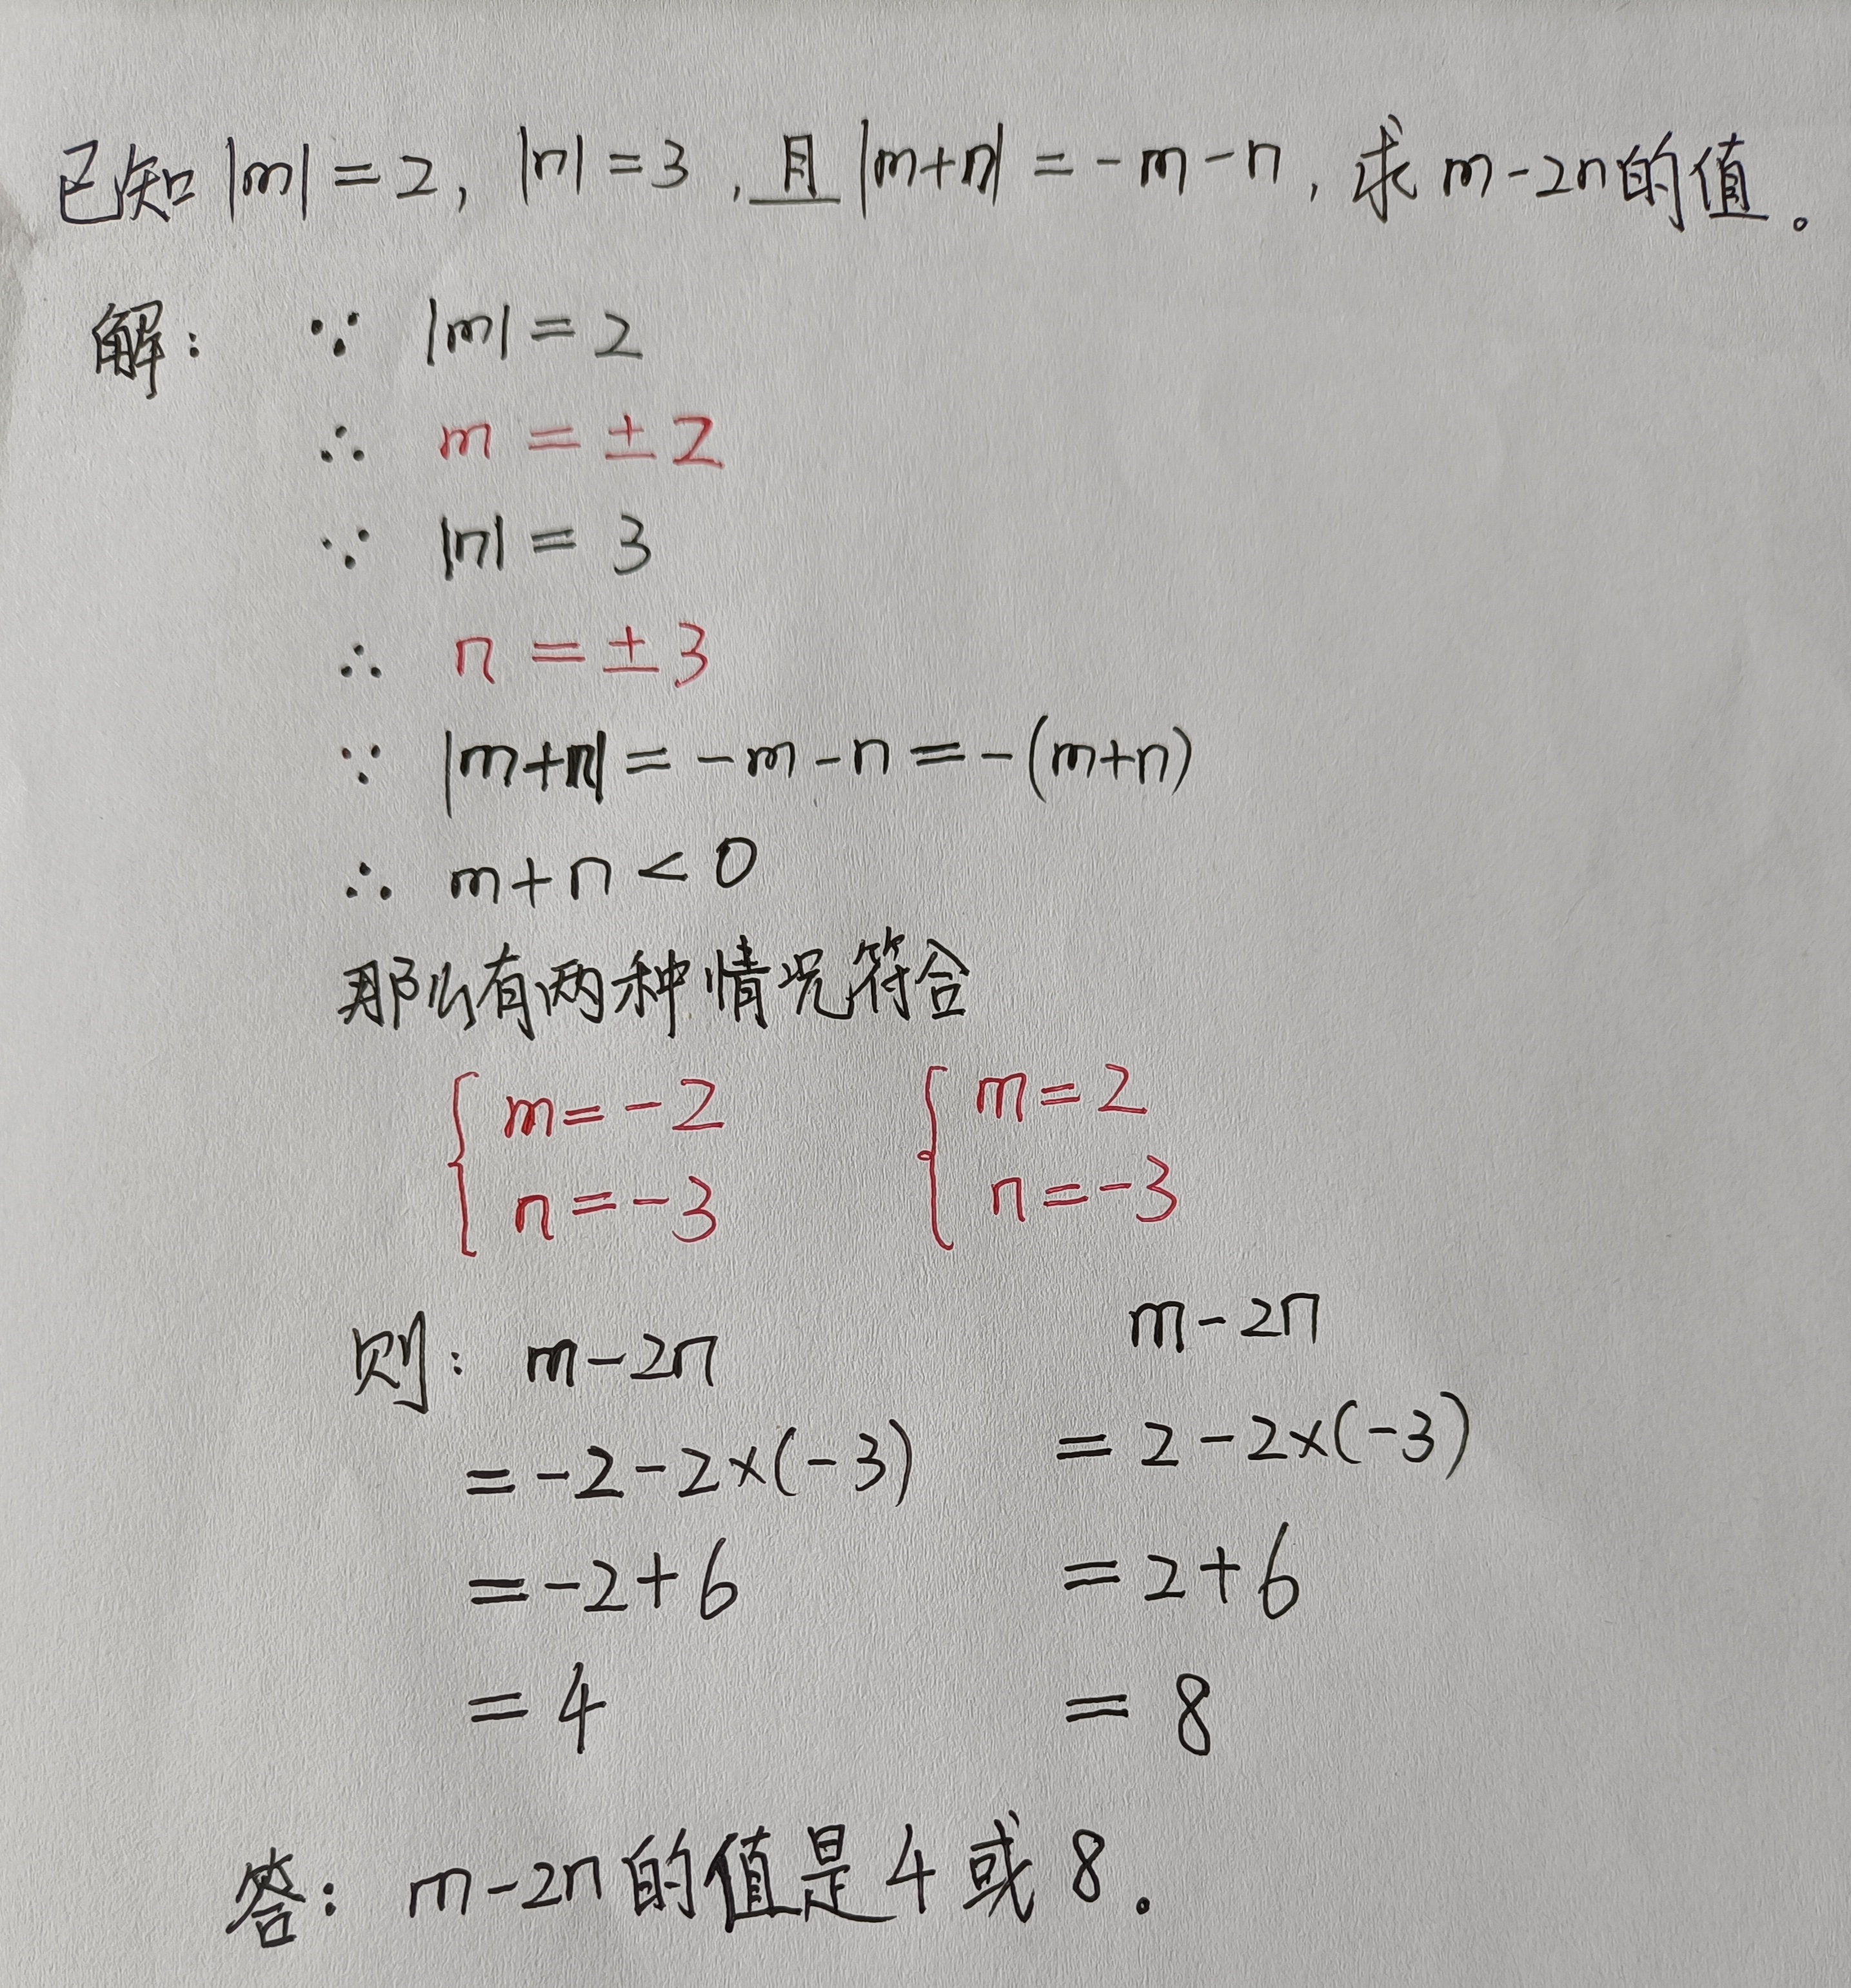 已知|m|=2, |n|=3,且|m+n|=-m-n,求m-2n的值。
解: ∵ |m|=2
∴ m=±2
∵ |n|=3
∴ n=±3
∵ |m+n|=-m-n=-(m+n)
∴ m+n<0
那么有两种情况符合
{ m=-2 { m=2
n=-3 n=-3
则: m-2n m-2n
=-2-2×(-3) =2-2×(-3)
=-2+6 =2+6
=4 =8
答: m-2n的值是4或8.